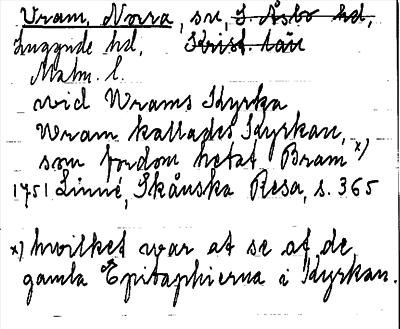 Vram, Norra, sn, S. Åsbo hd,
Luggude hd, Krist. län
Malm. l.
wid Wrams Kyrka
Wram kallades Kyrkan,
som fordom hetat Bram x)
1751 Linné, Skånska Resa, s. 365
x) hwilket war at se af de
gamla Epitaphierna i Kyrkan.